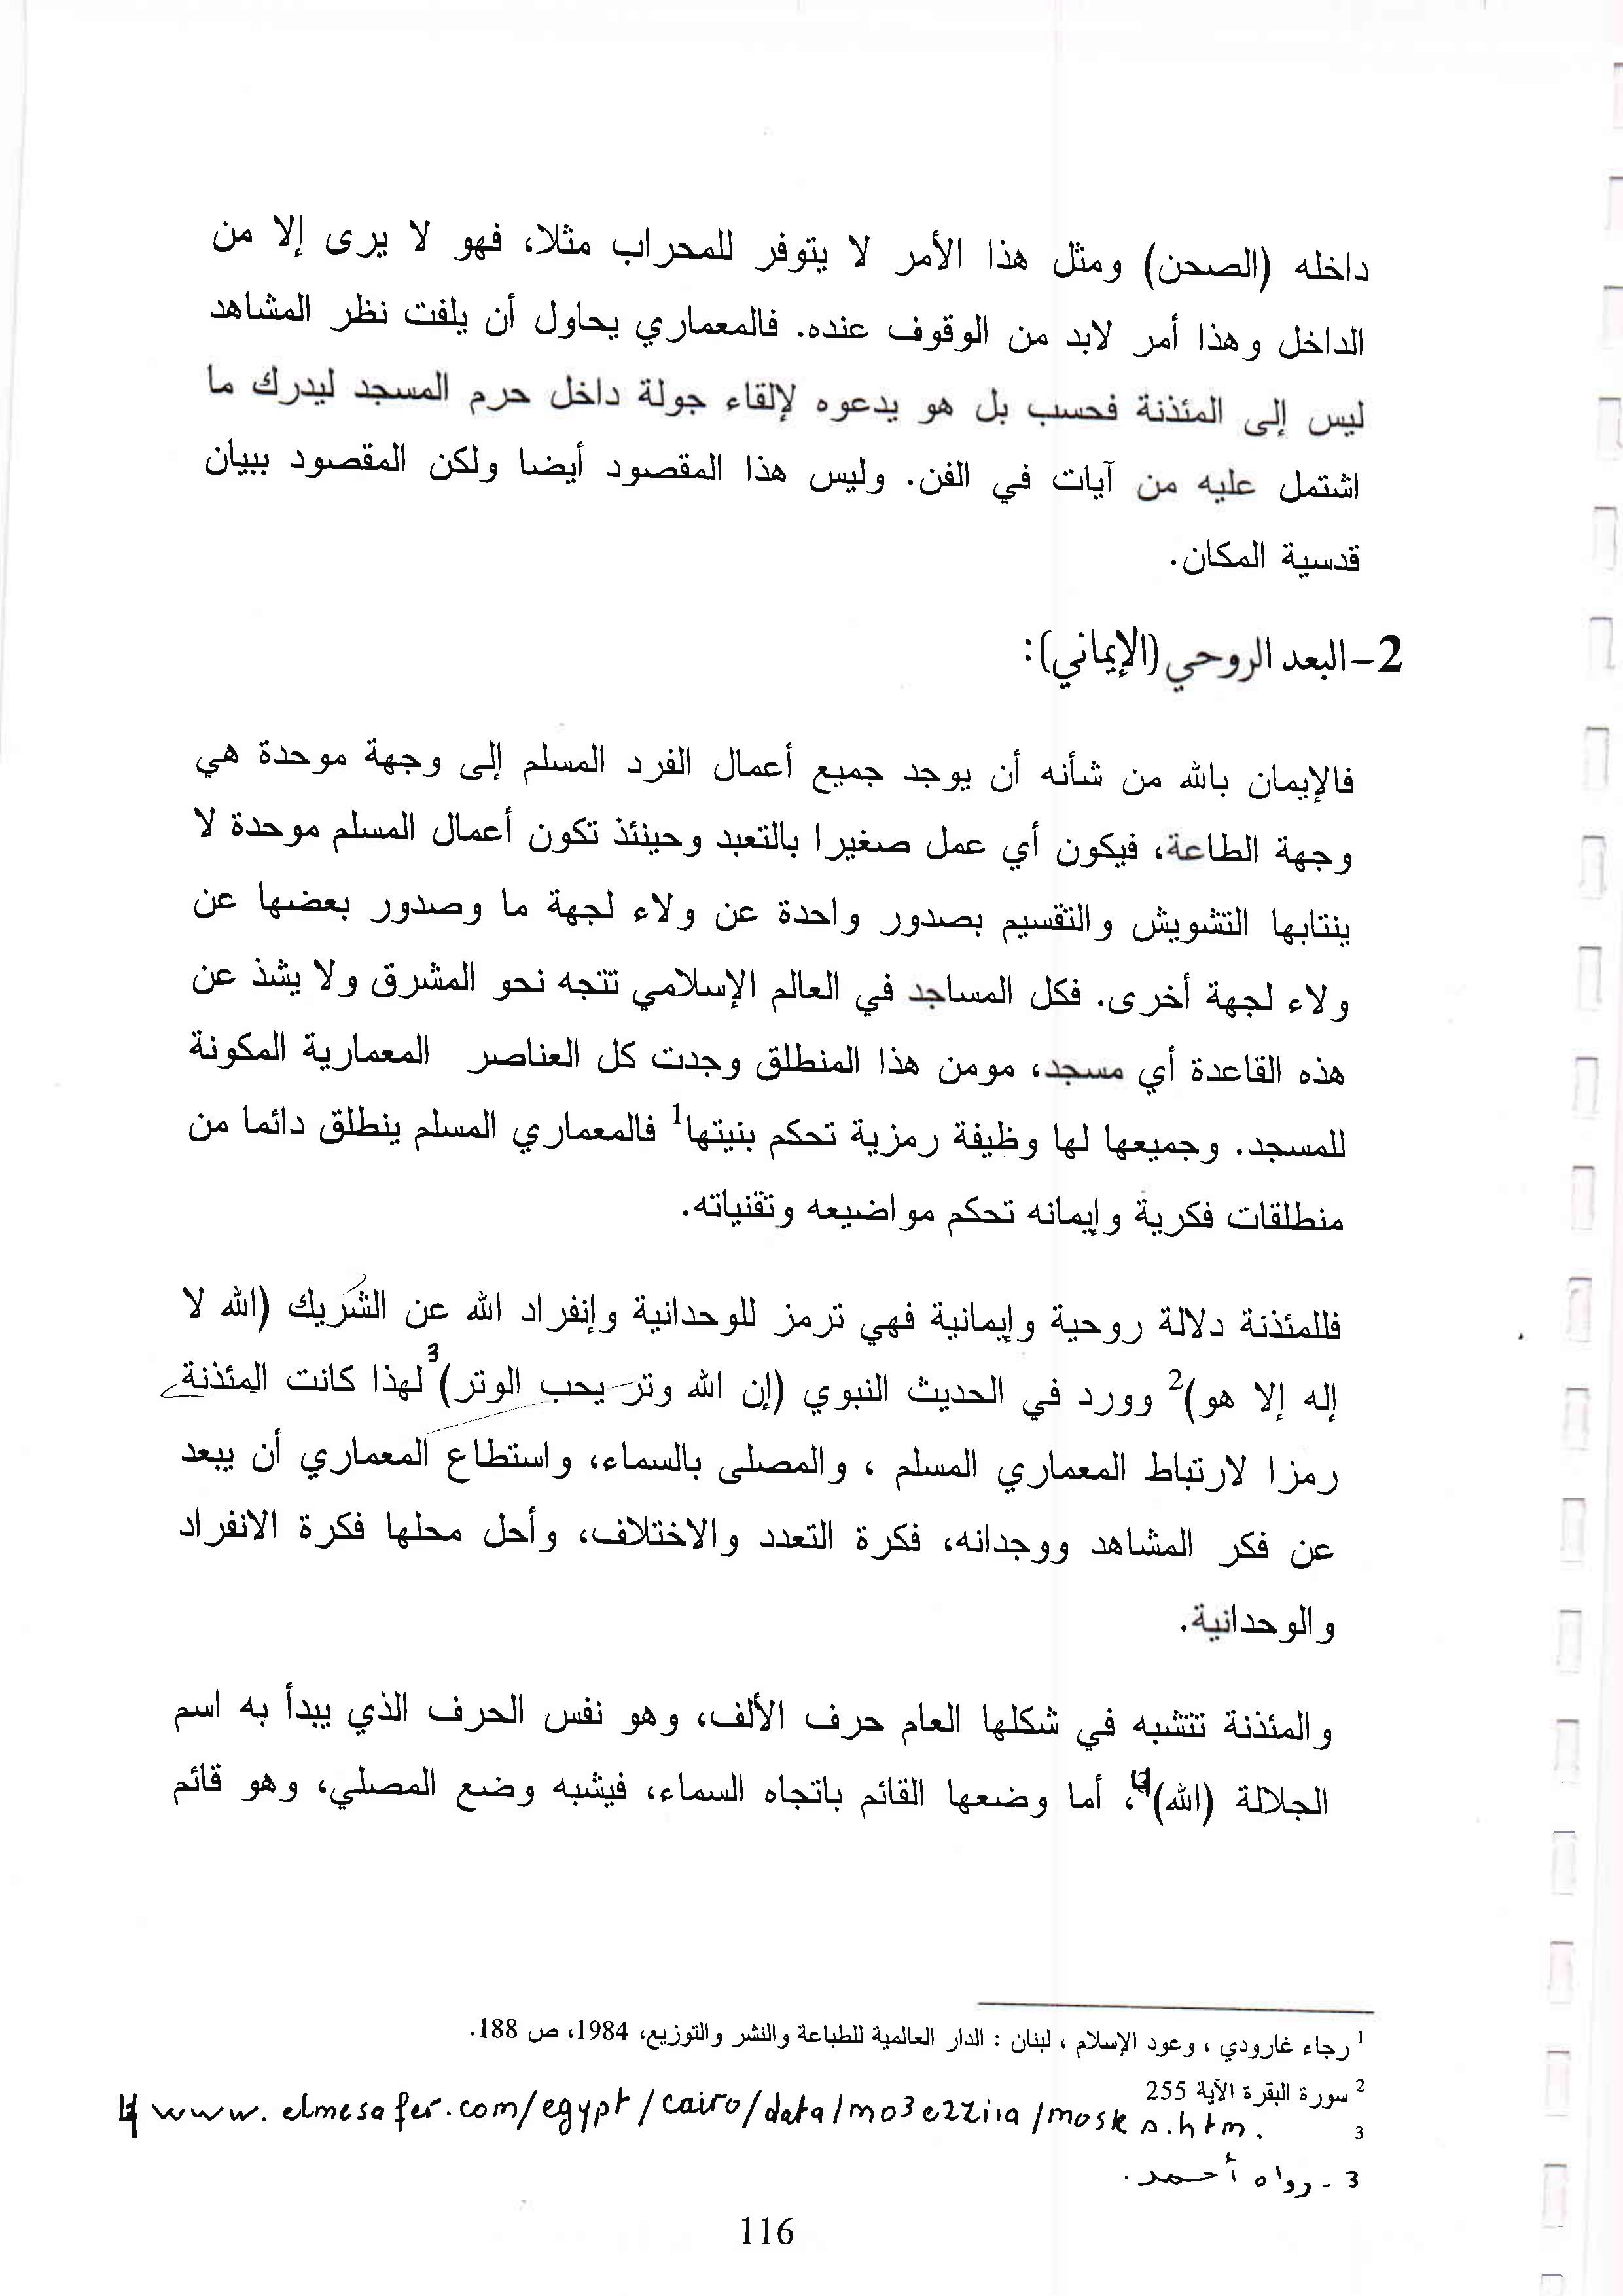 داخله (الصحن) ومثل هذا الأمر لا يتوفر للمحراب مثلا، فهو لا يرى إلا من
الداخل وهذا أمر لابد من الوقوف عنده. فالمعماري يحاول أن يلفت نظر المشاهد
ليس إلى المئذنة فحسب بل هو يدعوه لإلقاء جولة داخل حرم المسجد ليدرك ما
اشتمل عليه من آيات في الفن. وليس هذا المقصود أيضا ولكن المقصود ببيان
قدسية المكان.
2-البعد الروحي (الإيماني):
فالإيمان بالله من شأنه أن يوجد جميع أعمال الفرد المسلم إلى وجهة موحدة هي
وجهة الطاعة، فيكون أي عمل صغيرا بالتعبد وحينئذ تكون أعمال المسلم موحدة لا
ينتابها التشويش والتقسيم بصدور واحدة عن ولاء لجهة ما وصدور بعضها عن
ولاء لجهة أخرى. فكل المساجد في العالم الإسلامي تتجه نحو المشرق ولا يشذ عن
هذه القاعدة أي مسجد، مومن هذا المنطلق وجدت كل العناصر المعمارية المكونة
للمسجد. وجميعها لها وظيفة رمزية تحكم بنيتها1 فالمعماري المسلم ينطلق دائما من
منطلقات فكرية وإيمانه تحكم مواضيعه وتقنياته.
فللمئذنة دلالة روحية وإيمانية فهي ترمز للوحدانية وإنفراد الله عن الشريك (الله لا
إله إلا هو)2 وورد في الحديث النبوي (إن الله وتر يحب الوتر)3 لهذا كانت المئذنة
رمزا لارتباط المعماري المسلم ، والمصلى بالسماء، واستطاع المعماري أن يبعد
عن فكر المشاهد ووجدانه، فكرة التعدد والاختلاف، وأحل محلها فكرة الانفراد
والوحدانية.
والمئذنة تتشبه في شكلها العام حرف الألف، وهو نفس الحرف الذي يبدأ به اسم
الجلالة (الله)4، أما وضعها القائم باتجاه السماء، فيشبه وضع المصلي، وهو قائم
1 رجاء غارودي ، وعود الإسلام ، لبنان : الدار العالمية للطباعة والنشر والتوزيع، 1984، ص 188.
2 سورة البقرة الآية 255
4 www.elmesafer.com/egypt/cairo/data/
3
3 - رواه أحمد.
116